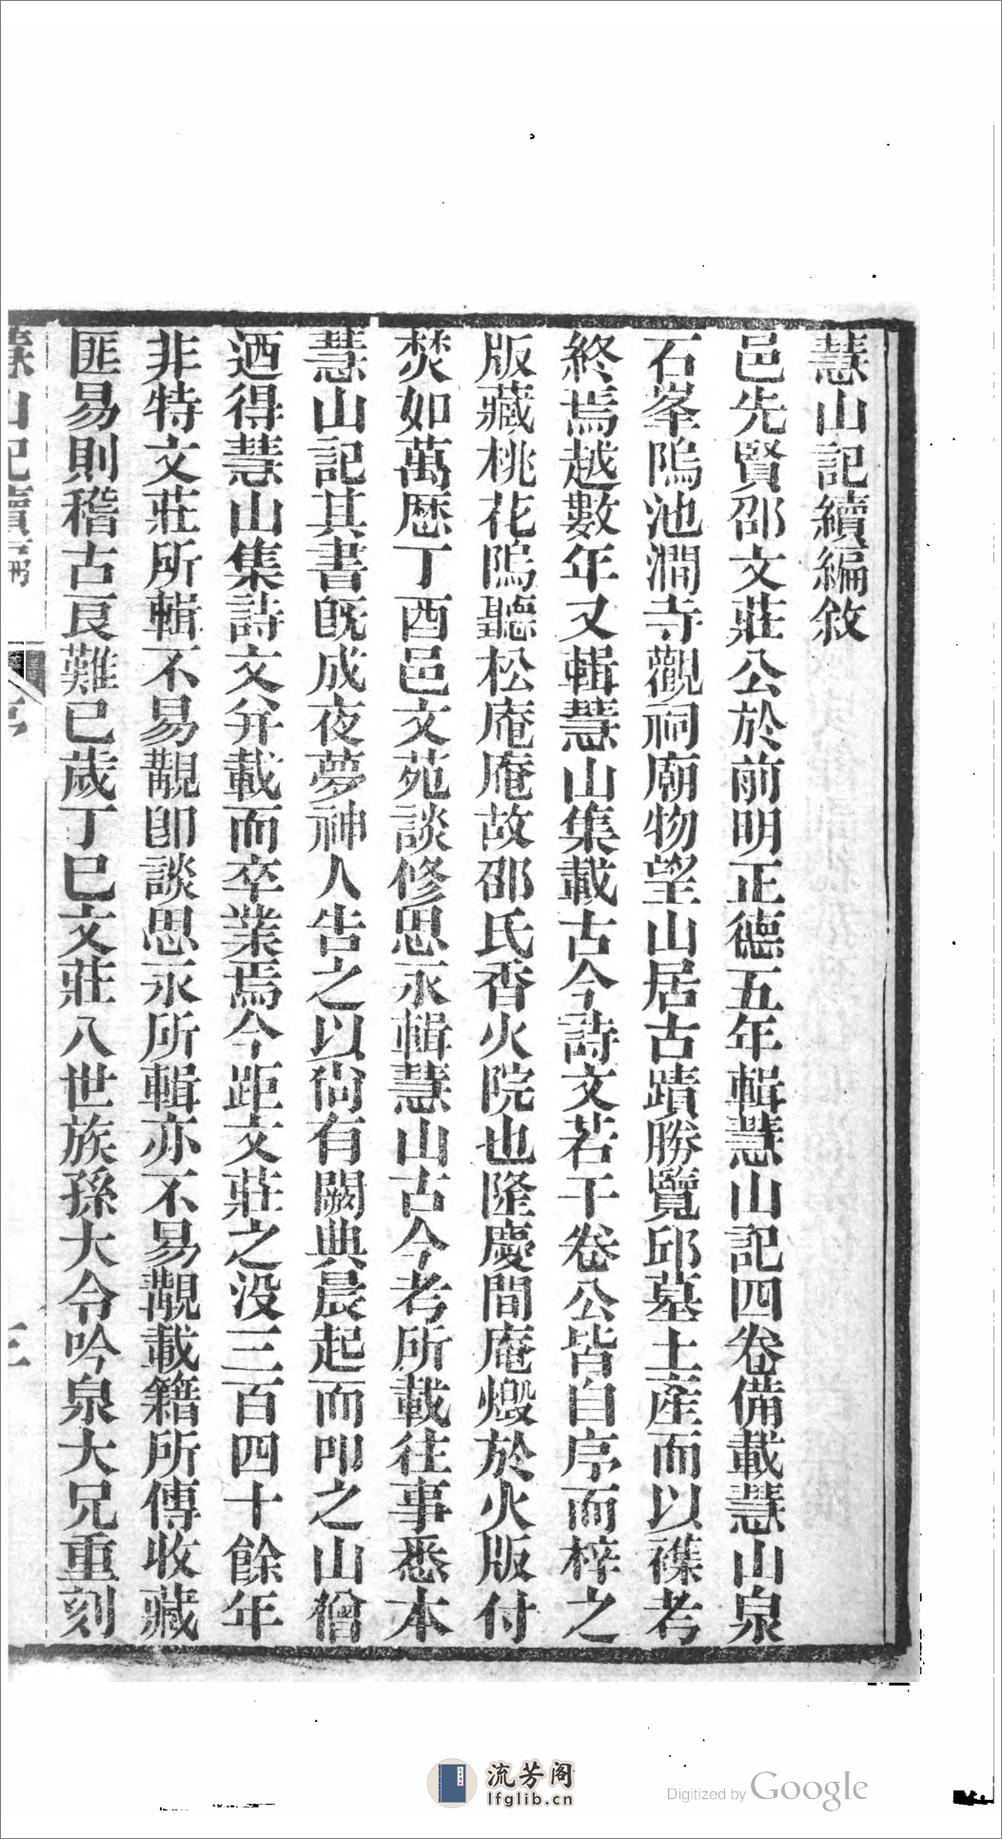 慧山記續編敘
邑先賢邵文莊公於前明正德五年輯慧山記四卷備載慧山泉
石峯隖池澗寺觀祠廟物望山居古蹟勝覽邱墓土產而以襍考
終焉越數年又輯慧山集載古今詩文若干卷公皆自序而梓之
版藏桃花隖聽松庵庵故邵氏香火院也隆慶間庵燬於火版付
焚如萬厯丁酉邑文苑談修思永輯慧山古今考所載往事悉本
慧山記其書既成夜夢神人告之以尙有闕典晨起而叩之山僧
迺得慧山集詩文弁載而卒業焉今距文莊之没三百四十餘年
非特文莊所輯不易覯卽談思永所輯亦不易覯載籍所傳收藏
匪易則稽古良難已歲丁巳文莊八世族孫大令吟泉大兄重刻
慧山記續編
三
流芳阁
lfglib.cn
Digitized by Google